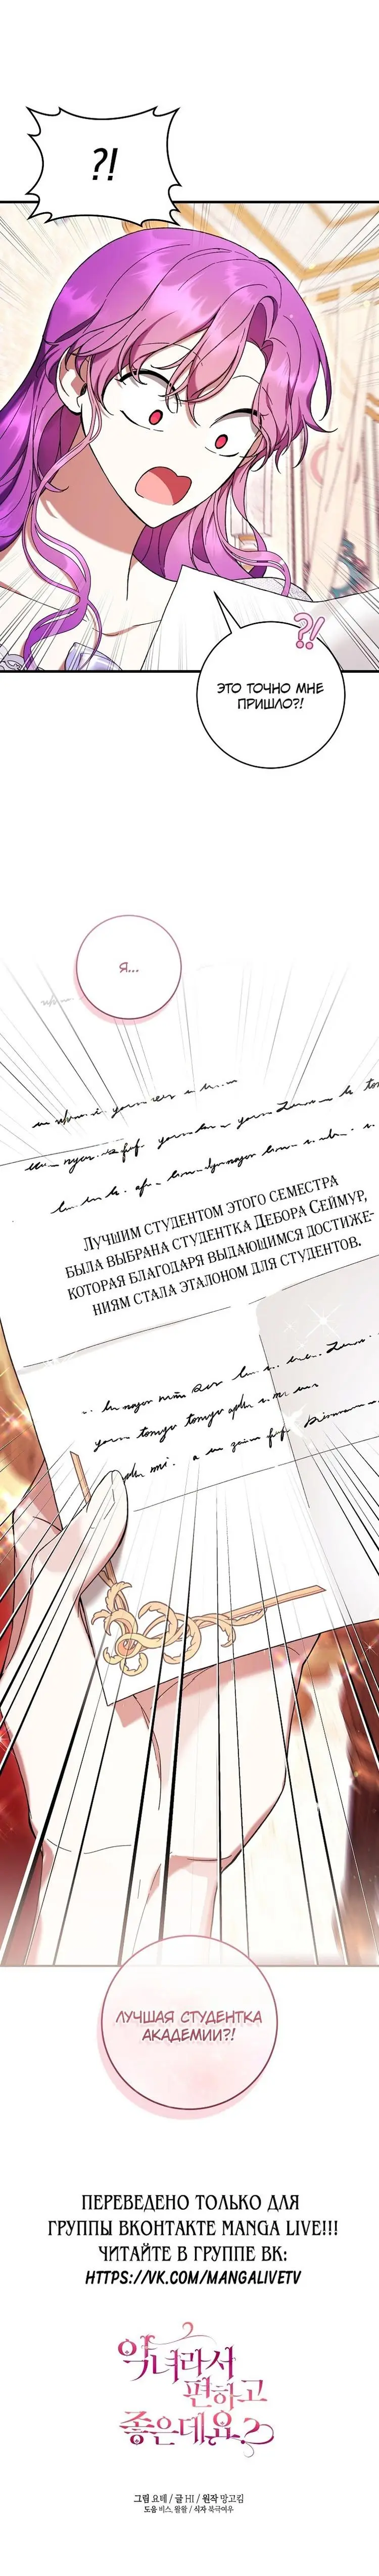 ?!
?!
ЭТО ТОЧНО МНЕ
ПРИШЛО?!
Я...
ЛУЧШИМ СТУДЕНТОМ ЭТОГО СЕМЕСТРА
БЫЛА ВЫБРАНА СТУДЕНТКА ДЕБОРА СЕЙМУР,
КОТОРАЯ БЛАГОДАРЯ ВЫДАЮЩИМСЯ ДОСТИЖЕ-
НИЯМ СТАЛА ЭТАЛОНОМ ДЛЯ СТУДЕНТОВ.
ЛУЧШАЯ СТУДЕНТКА
АКАДЕМИИ?!
ПЕРЕВЕДЕНО ТОЛЬКО ДЛЯ
ГРУППЫ ВКОНТАКТЕ MANGA LIVE!!!
ЧИТАЙТЕ В ГРУППЕ ВК:
HTTPS://VK.COM/MANGALIVETV
악녀라서
편하고
좋은데요?
그림 요떼 / 글 HI / 원작 망고킴
도움 비스, 왈왈 / 식자 북극여우